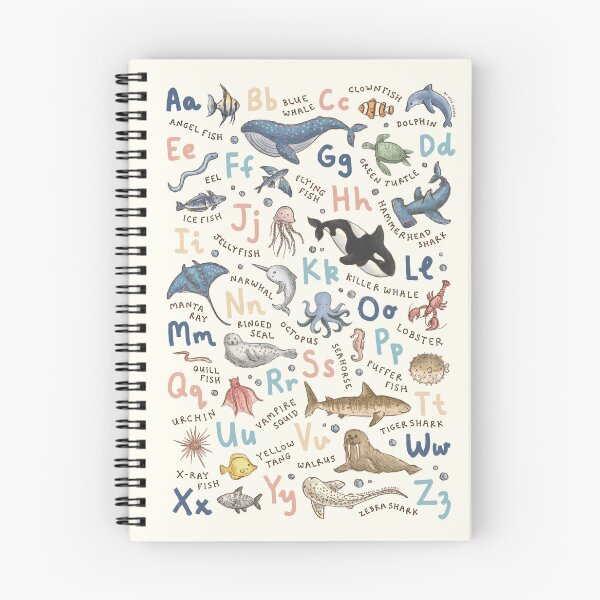 Aa
Bb
BLUE
WHALE
Cc
CLOWNFISH
DOLPHIN
ANGEL FISH
Ee
EEL
Ff
FLYING
FISH
Gg
GREEN TURTLE
Dd
ICE FISH
Ii
Jj
JELLYFISH
Hh
HAMMERHEAD
SHARK
MANTA
RAY
NARWHAL
Nn
Kk
KILLER WHALE
Ll
Mm
RINGED
SEAL
OCTOPUS
Oo
LOBSTER
QUILL
FISH
Qq
Rr
SEAHORSE
Ss
Pp
PUFFER
FISH
URCHIN
Uu
VAMPIRE
SQUID
Vv
TIGER SHARK
Tt
X-RAY
FISH
YELLOW
TANG
WALRUS
Ww
Xx
Yy
ZEBRA SHARK
Zz